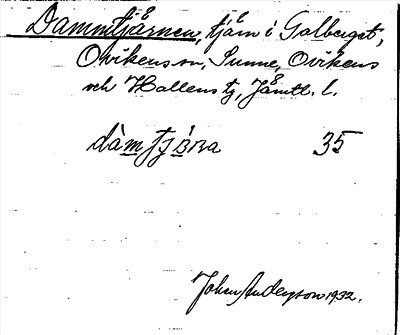 Dammtjärnen, tjärn i Galberget,
Ovikens sn, Sunne, Ovikens
och Hallens tg, Jämtl. l.
dàmtjä̀ɳa 35
Johan Anderson 1932.